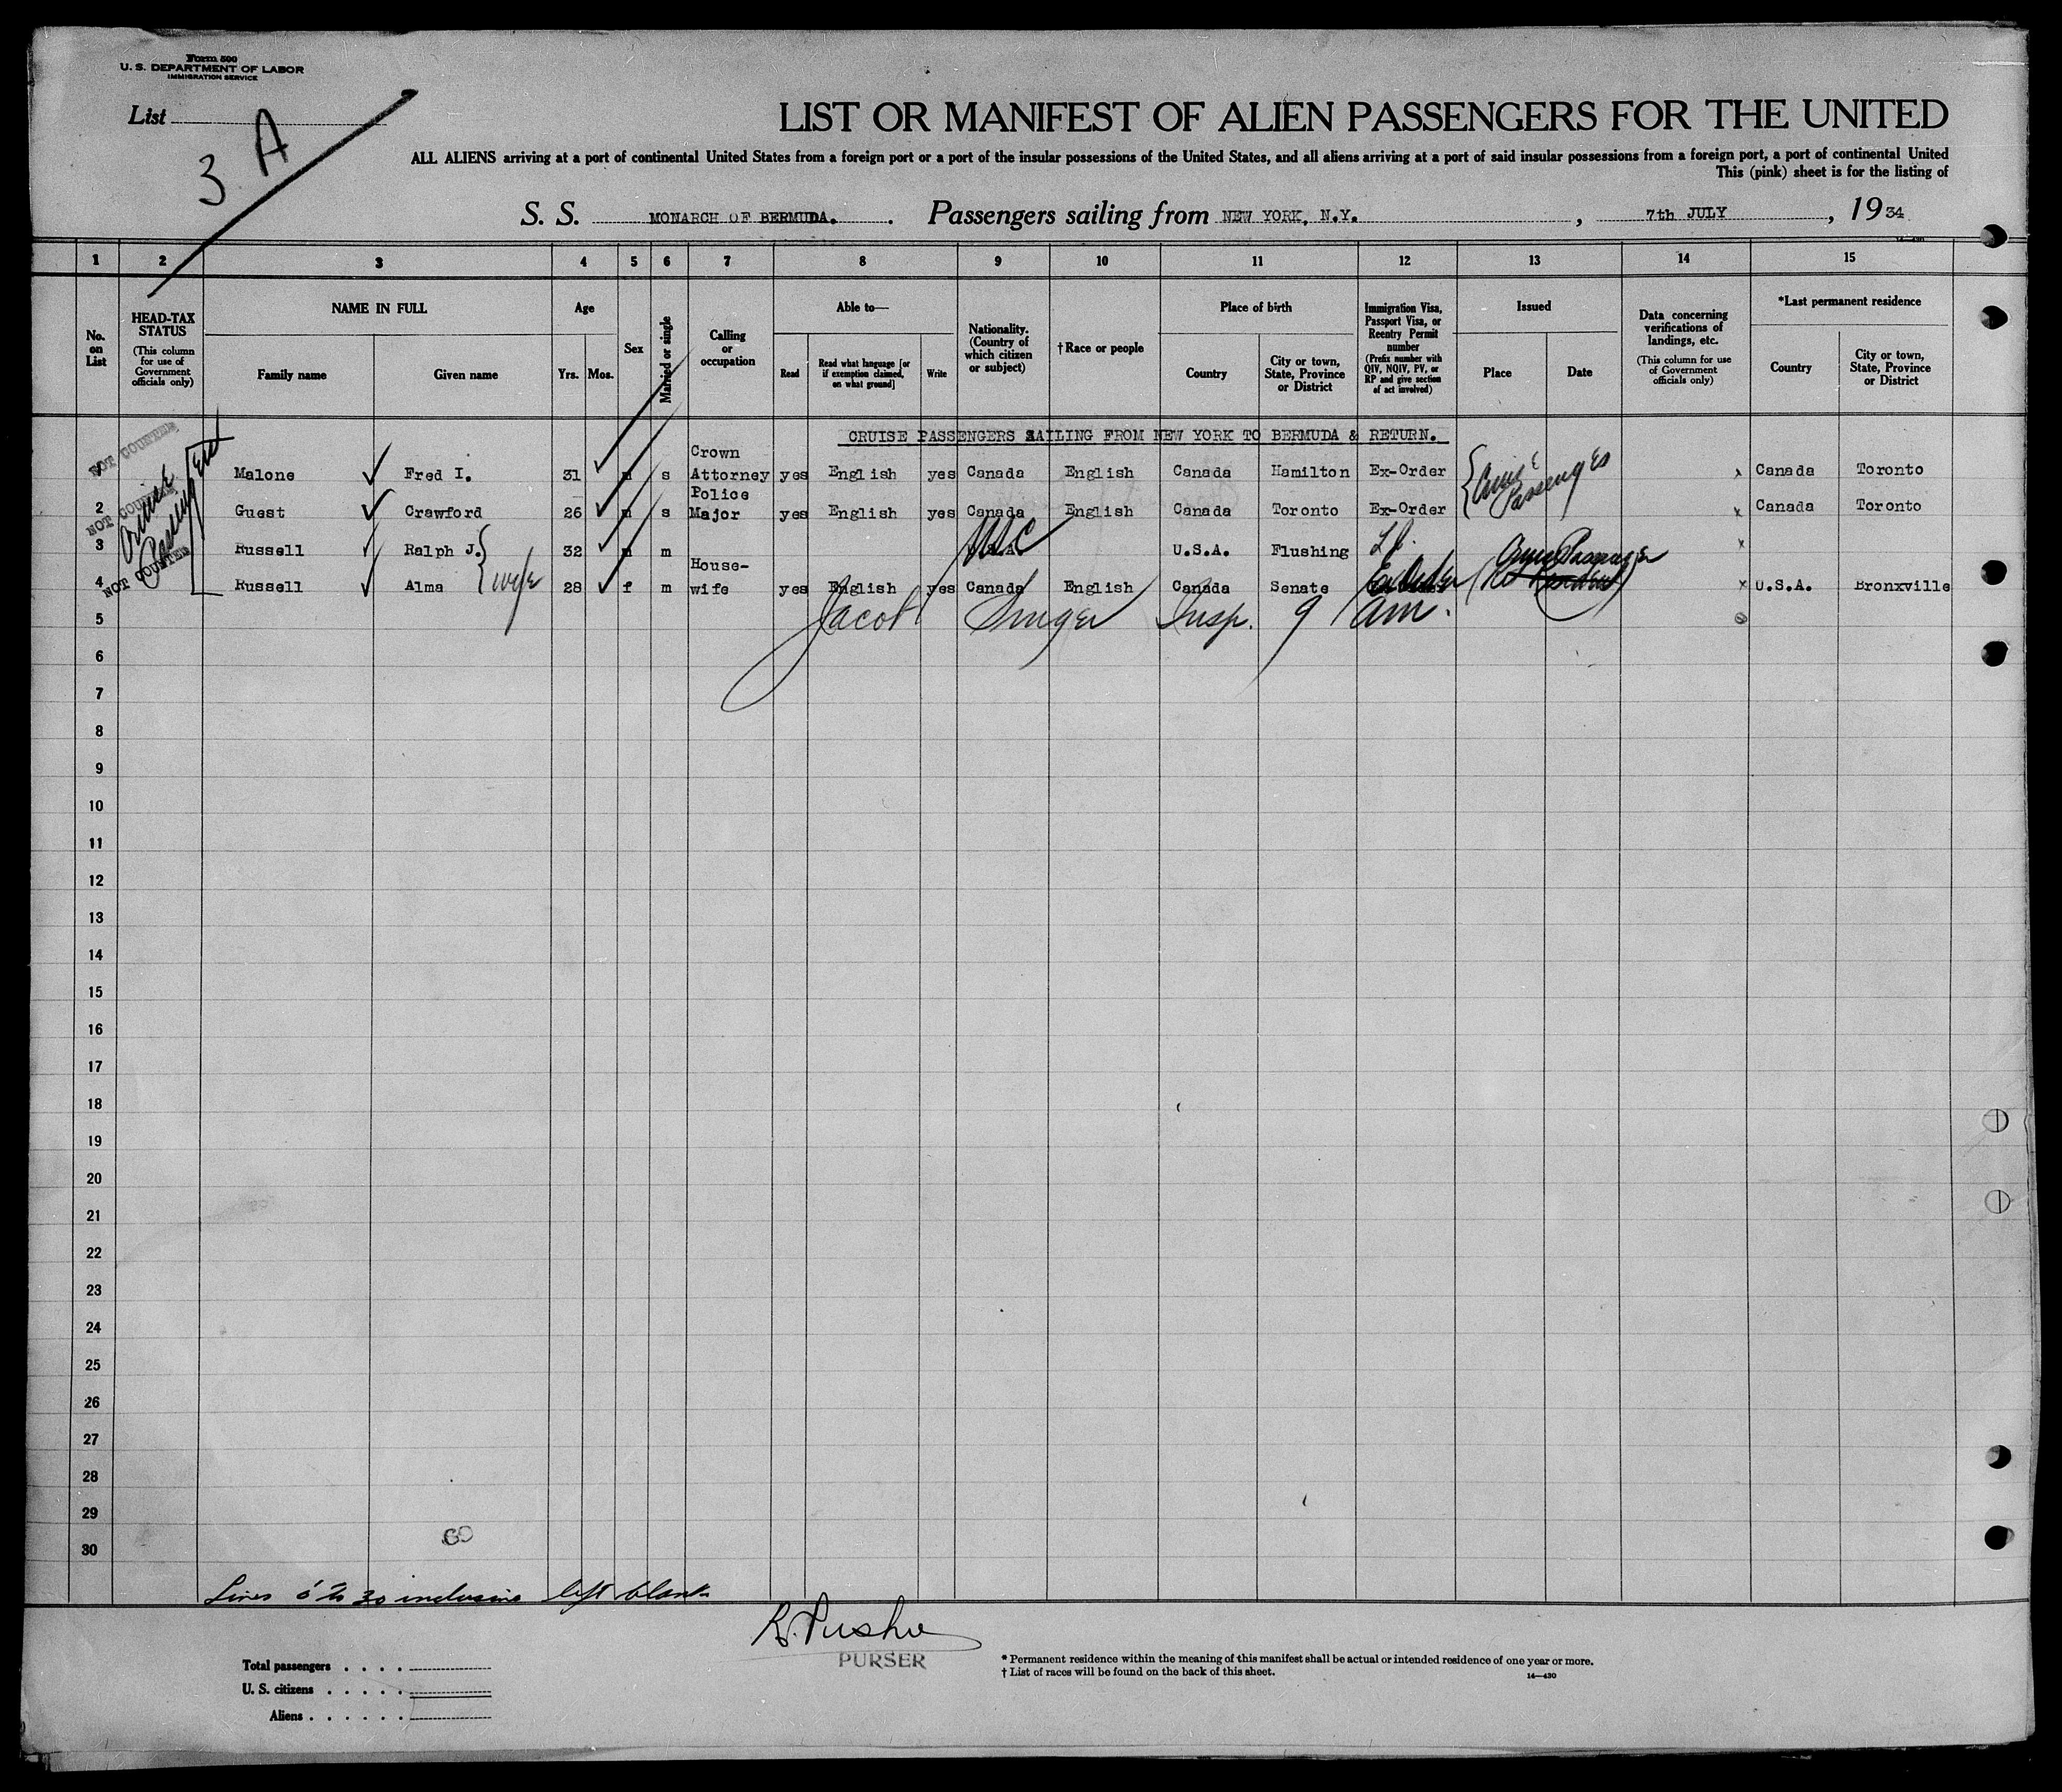 Form 500
U. S. DEPARTMENT OF LABOR
IMMIGRATION SERVICE
List
3 A
LIST OR MANIFEST OF ALIEN PASSENGERS FOR THE UNITED
ALL ALIENS arriving at a port of continental United States from a foreign port or a port of the insular possessions of the United States, and all aliens arriving at a port of said insular possessions from a foreign port, a port of continental United
This (pink) sheet is for the listing of
S. S. MONARCH OF BERMUDA. Passengers sailing from NEW YORK, N.Y. , 7th JULY , 1934
1 2 3 4 5 6 7 8 9 10 11 12 13 14 15
No. on List
HEAD-TAX STATUS
(This column for use of Government officials only)
NAME IN FULL
Family name Given name
Age
Yrs. Mos.
Sex
Married or single
Calling or occupation
Able to—
Read
Read what language [or if exemption claimed, on what ground]
Write
Nationality. (Country of which citizen or subject)
†Race or people
Place of birth
Country
City or town, State, Province or District
Immigration Visa, Passport Visa, or Reentry Permit number
(Prefix number with QIV, NQIV, PV, or RP and give section of act involved)
Issued
Place Date
Data concerning verifications of landings, etc.
(This column for use of Government officials only)
*Last permanent residence
Country
City or town, State, Province or District
CRUISE PASSENGERS SAILING FROM NEW YORK TO BERMUDA & RETURN.
NOT COUNTED
NOT COUNTED
NOT COUNTED
Cruise Passengers
Crown
1 Malone Fred I. 31 m s Attorney yes English yes Canada English Canada Hamilton Ex-Order Cruise Passengers x Canada Toronto
Police
2 Guest Crawford 26 m s Major yes English yes Canada English Canada Toronto Ex-Order x Canada Toronto
3 Russell Ralph J. 32 m m USC U.S.A. U.S.A. Flushing L.I. x
House-
4 Russell Alma wife 28 f m wife yes English yes Canada English Canada Senate Ex Order Cruise Passenger x U.S.A. Bronxville
5 Jacob Singer Insp. 9 am.
6
7
8
9
10
11
12
13
14
15
16
17
18
19
20
21
22
23
24
25
26
27
28
29
30
Lines 5 to 30 inclusive left blank
PURSER
Total passengers
U. S. citizens
Aliens
* Permanent residence within the meaning of this manifest shall be actual or intended residence of one year or more.
† List of races will be found on the back of this sheet.
14—430